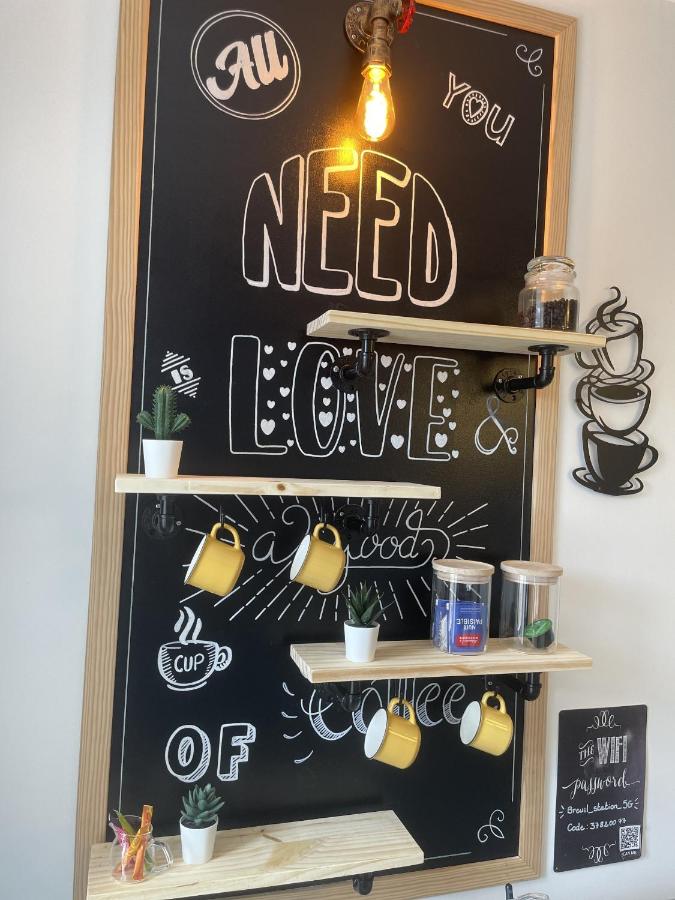 All
YOU
NEED
IS
LOVE
&
a good
CUP
OF
coffee
NUIT
PAISIBLE
THE WIFI
password
Breuil_station_5G
Code: 37840077